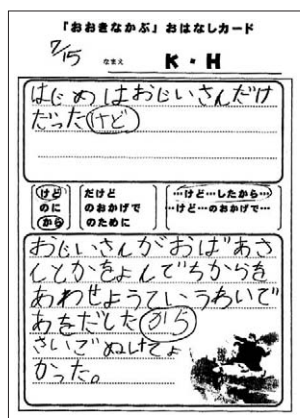 「おおきなかぶ」おはなしカード
7/15 なまえ K・H
はじめはおじいさんだけ
だったけど
けど
のに
から
だけど
のおかげで
のために
…けど…したから…
…けど…のおかげで…
おじいさんがおばあさ
んとかをよんでちからを
あわせようていうちいで
あをだした から
さいごぬけてよ
かった。